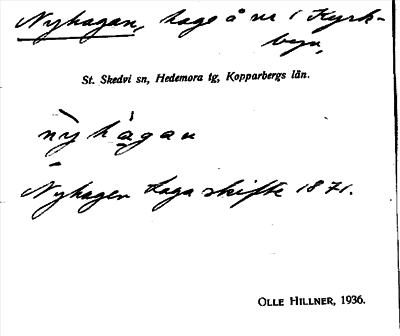 Nyhagan, hage å nr 1 Kyrk-
byn,
St. Skedvi sn, Hedemora tg, Kopparbergs län.
nỳhàgan
Nyhagen Laga skifte 1871.
OLLE HILLNER, 1936.